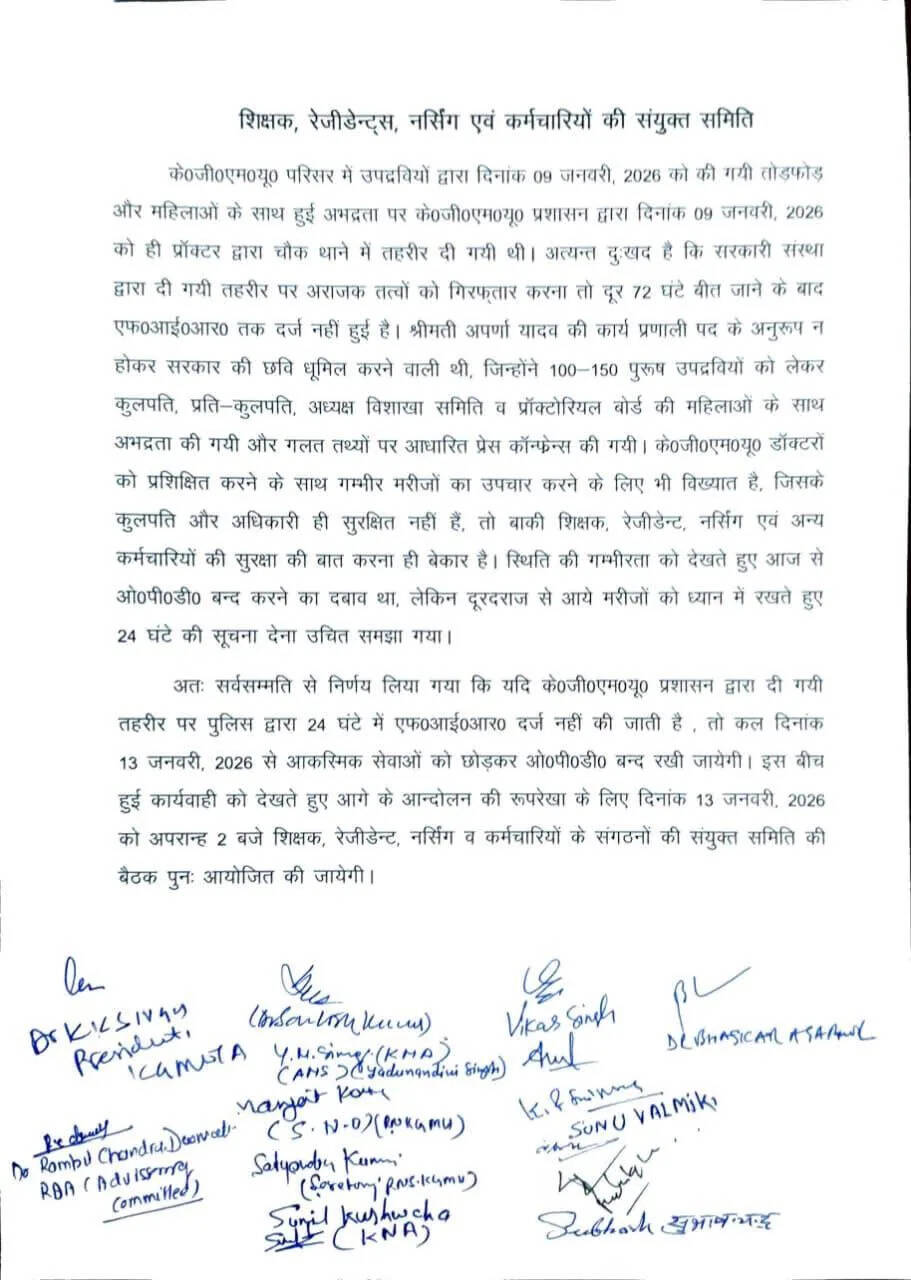 शिक्षक, रेजीडेन्ट्स, नर्सिंग एवं कर्मचारियों की संयुक्त समिति
के0जी0एम0यू0 परिसर में उपद्रवियों द्वारा दिनांक 09 जनवरी, 2026 को की गयी तोड़फोड़
और महिलाओं के साथ हुई अभद्रता पर के0जी0एम0यू0 प्रशासन द्वारा दिनांक 09 जनवरी, 2026
को ही प्रॉक्टर द्वारा चौक थाने में तहरीर दी गयी थी। अत्यन्त दुःखद है कि सरकारी संस्था
द्वारा दी गयी तहरीर पर अराजक तत्वों को गिरफ्तार करना तो दूर 72 घंटे बीत जाने के बाद
एफ0आई0आर0 तक दर्ज नहीं हुई है। श्रीमती अपर्णा यादव की कार्य प्रणाली पद के अनुरूप न
होकर सरकार की छवि धूमिल करने वाली थी, जिन्होंने 100–150 पुरूष उपद्रवियों को लेकर
कुलपति, प्रति–कुलपति, अध्यक्ष विशाखा समिति व प्रॉक्टोरियल बोर्ड की महिलाओं के साथ
अभद्रता की गयी और गलत तथ्यों पर आधारित प्रेस कॉन्फ्रेन्स की गयी। के0जी0एम0यू0 डॉक्टरों
को प्रशिक्षित करने के साथ गम्भीर मरीजों का उपचार करने के लिए भी विख्यात है, जिसके
कुलपति और अधिकारी ही सुरक्षित नहीं हैं, तो बाकी शिक्षक, रेजीडेन्ट, नर्सिंग एवं अन्य
कर्मचारियों की सुरक्षा की बात करना ही बेकार है। स्थिति की गम्भीरता को देखते हुए आज से
ओ0पी0डी0 बन्द करने का दबाव था, लेकिन दूरदराज से आये मरीजों को ध्यान में रखते हुए
24 घंटे की सूचना देना उचित समझा गया।
अतः सर्वसम्मति से निर्णय लिया गया कि यदि के0जी0एम0यू0 प्रशासन द्वारा दी गयी
तहरीर पर पुलिस द्वारा 24 घंटे में एफ0आई0आर0 दर्ज नहीं की जाती है , तो कल दिनांक
13 जनवरी, 2026 से आकस्मिक सेवाओं को छोड़कर ओ0पी0डी0 बन्द रखी जायेगी। इस बीच
हुई कार्यवाही को देखते हुए आगे के आन्दोलन की रूपरेखा के लिए दिनांक 13 जनवरी, 2026
को अपरान्ह 2 बजे शिक्षक, रेजीडेन्ट, नर्सिंग व कर्मचारियों के संगठनों की संयुक्त समिति की
बैठक पुनः आयोजित की जायेगी।
Dr K.K SINGH
President,
KGMUTA
(Dr Santosh Kumar)
Y.N. Singh (KNA)
(ANS) (Yadunandini Singh)
Manjeet Kaur
(S.N.O) (RNS KGMU)
Kumar
(Secretary RNS.KGMU)
Sunil Kushwaha
(KNA)
Vikas Singh
DR BHASKAR AGARWAL
SONU VALMIKI
Dr Chandra
RDA (Advisory
Committed)
Subhash सुभाष चन्द्र